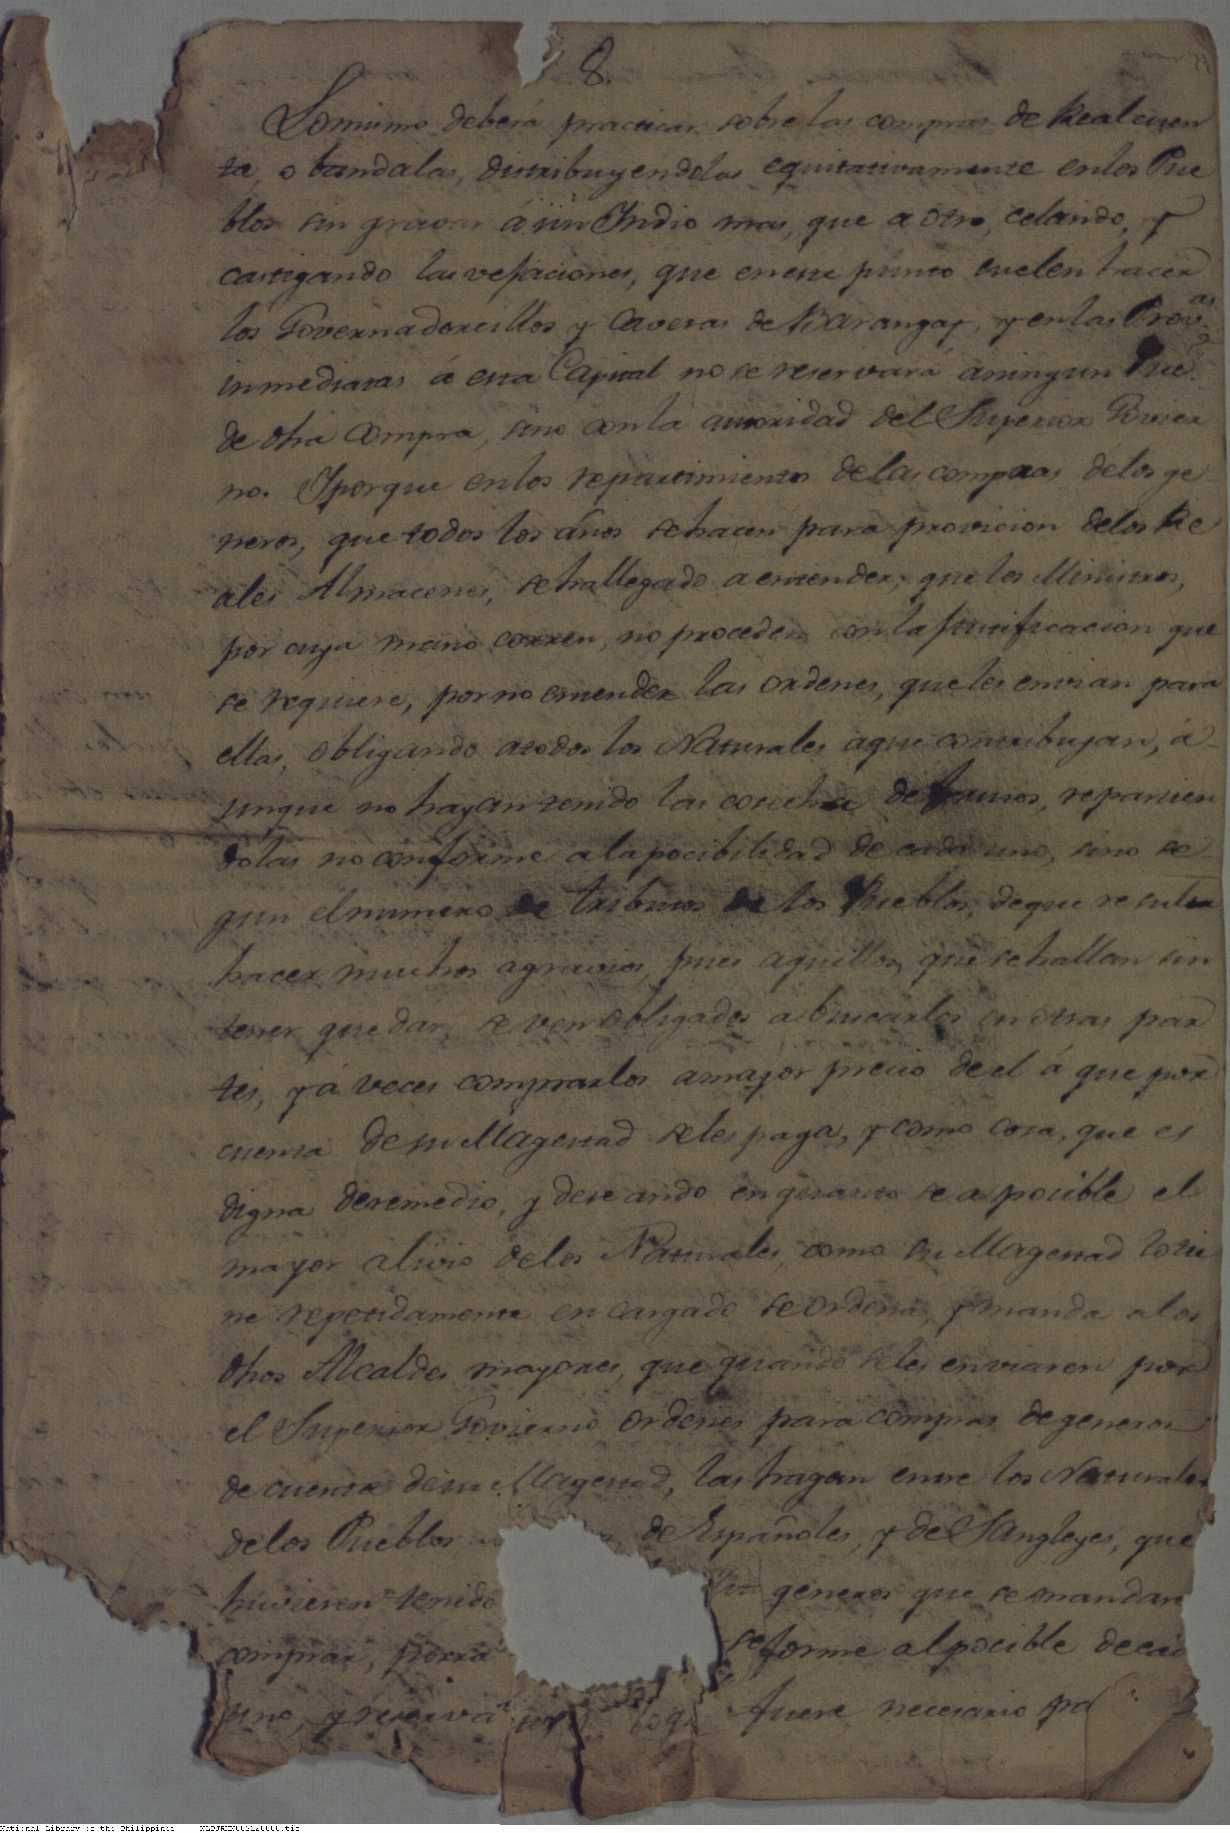 8.
Lo mismo deberá practicar sobre las compras de Real cuen
ta, o bandalas, distribuyendolas equitativamente en los Pue
blos sin gravar á un Indio mas, que a otro, celando, y
castigando las vejaciones, que en este punto suelen hacer
los Governadorcillos y Caveras de Barangay, y en las Prov.as
inmediatas á esta Capital no se reservará á ningun Pue.
de dha compra, sino con la autoridad del Superior Govier
no. Y porque en los repartimientos de las compras de los ge
neros, que todos los años se hacen para provicion de los Re
ales Almacenes, se ha llegado a entender, que los Ministros,
por cuya mano corren, no proceden con la justificacion que
se requiere, por no entender las ordenes, que les envian para
ellas, obligando a todos los Naturales a que contribuyan, á
unque no hayan tenido las cosechas de frutos, repartien
dolas no conforme a la pocibilidad de cada uno, sino se
gun el numero de tributos de los Pueblos, de que resulta
hacer muchos agravios, pues aquellos, que se hallan sin
tener que dar, se ven obligados a buscarlos en otras par
tes, y á veces comprarlos a mayor precio de el á que por
cuenta de su Magestad se les paga, y como cosa, que es
digna de remedio, y deseando en quanto sea posible el
mayor alivio de los Naturales, como su Magestad lo tie
ne repetidamente encargado se ordena, y manda a los
dhos Alcaldes mayores, que quando se les enviaren por
el Superior Govierno ordenes para compras de generos
de cuenta de su Magestad, las hagan entre los Naturales
de los Pueblos de Españoles, y de Sangleyes, que
huvieren tenido generos que se mandan
comprar, forme al pocible de cad
uno, y reserva fuere necesario pa
National Library of the Philippines